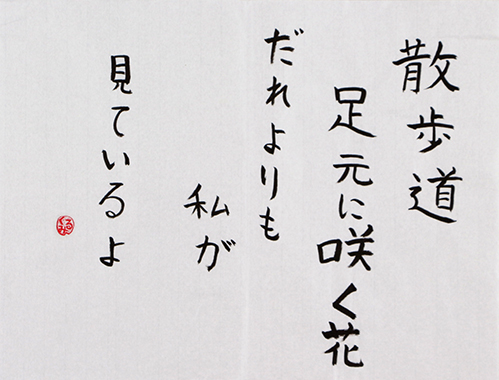 散歩道
足元に咲く花
だれよりも
私が
見ているよ